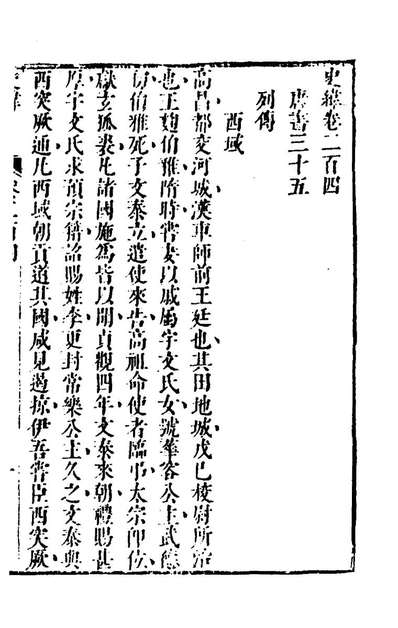 史緯卷二百四
唐書三十五
列傳
西域
高昌都交河城漢車師前王廷也其田地城戊己校尉所治
也王麴伯雅隋時嘗妻以戚屬宇文氏女號華容公主武德
初伯雅死子文泰立遣使來告高祖命使者臨弔太宗卽位
獻玄狐裘凡諸國施爲皆以聞貞觀四年文泰來朝禮賜甚
厚宇文氏求預宗籍詔賜姓李更封常樂公主久之文泰與
西突厥通凡西域朝貢道其國咸見遏掠伊吾嘗臣西突厥